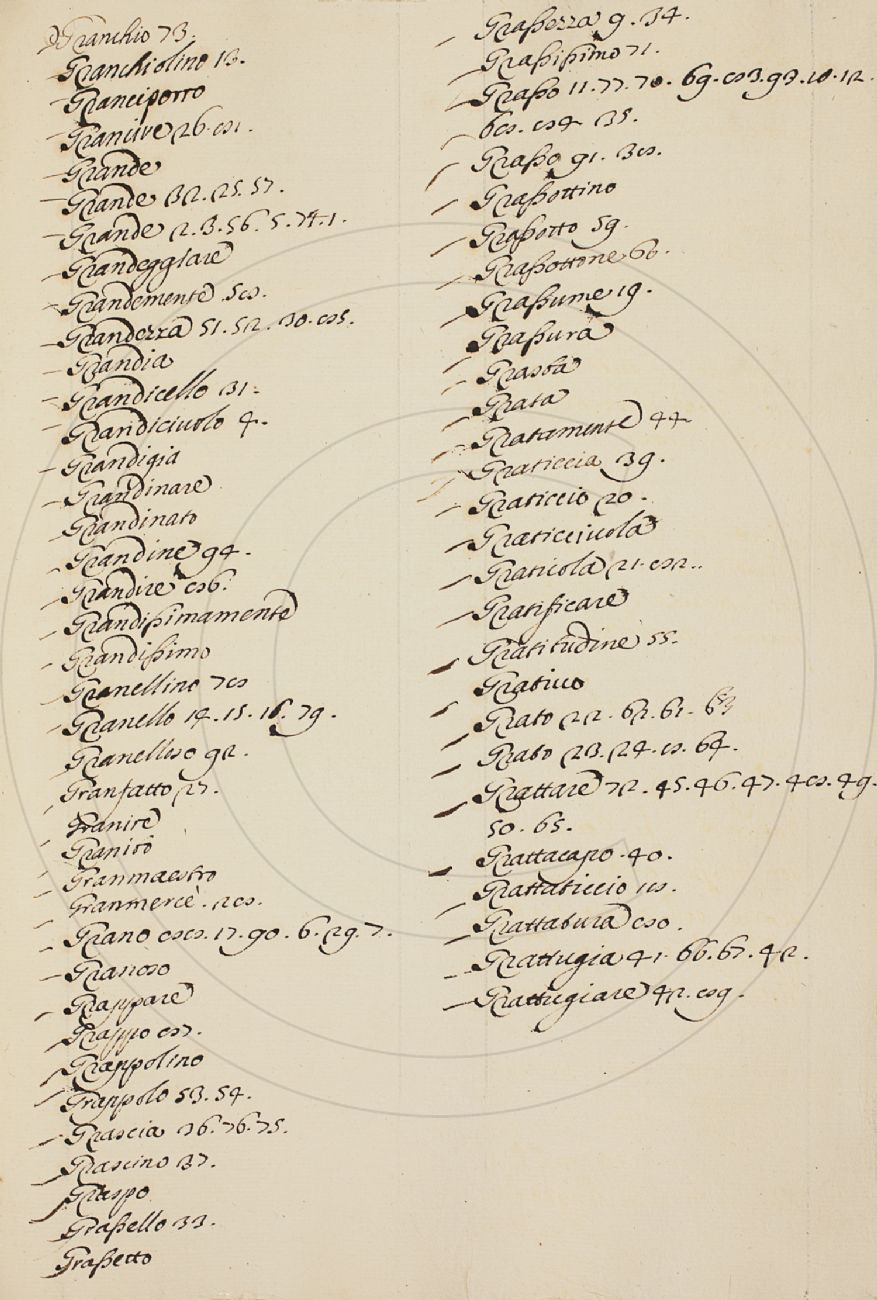 Granchio 73.
Granchiolino 13.
Granciporro
Grancire 26. 81.
Grande
Grande 32. 25. 57.
Grande 2. 3. 56. 5. 74. 1.
Grandeggiare
Grandemente 58.
Grandezza 51. 52. 30. 85.
Grandia
Grandicello 31.
Grandiciuolo 4.
Grandigia
Grandinare
Grandinato
Grandine 94.
Grandire 86.
Grandißimamente
Grandißimo
Granellino 78
Granello 14. 15. 16. 79.
Granelloso 92.
Granfatto 27.
Granire
Granito
Granmaestro
Granmercè. 28.
Grano 88. 17. 90. 6. 29. 7.
Granoso
Grappare
Grappo 87.
Grappolino
Grappolo 53. 54.
Grascia 36. 76. 75.
Grascino 37.
Graspo
Graßello 33.
Graßetto
Graßezza 9. 34.
Graßißimo 71.
Graßo 11. 77. 70. 69. 83. 93. 10. 12.
68. 84 35.
Graßo 91. 38.
Graßottino
Graßotto 59.
Graßottone 60.
Graßume 19.
Graßura
Grasta
Grata
Gratamente 44
Graticcia 39.
Graticcio 20.
Graticciuola
Graticola 21. 82..
Gratificare
Gratitudine 55.
Grativo
Grato 22. 62. 61. 63
Grato 23. 24. 8. 64.
Grattare 72. 45. 46. 47. 48. 49.
50. 65.
Grattacapo 40.
Grattaticcio 18.
Grattatura 80.
Grattugia 41. 66. 67. 42.
Grattugiare 42. 89.